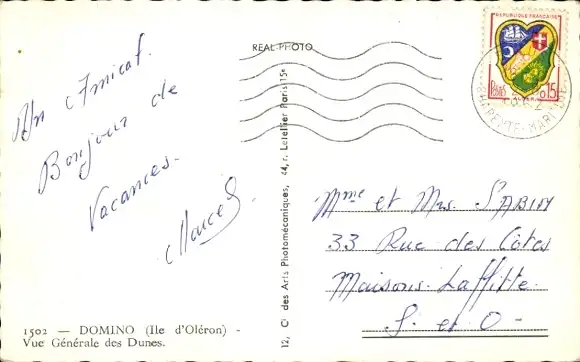 REAL-PHOTO
REPUBLIQUE FRANÇAISE
POSTES
0,15
CHARENTE-MARITIME
Un Amical
Bonjour de
Vacances.
Marcel
12, Cⁱ des Arts Photomécaniques, 44, r. Letellier Paris 15ᵉ
Mme et Mrs. SABIN
33 Rue des Côtes
Maisons-Laffitte.
S. et O-
1502 — DOMINO (Ile d'Oléron) -
Vue Générale des Dunes.